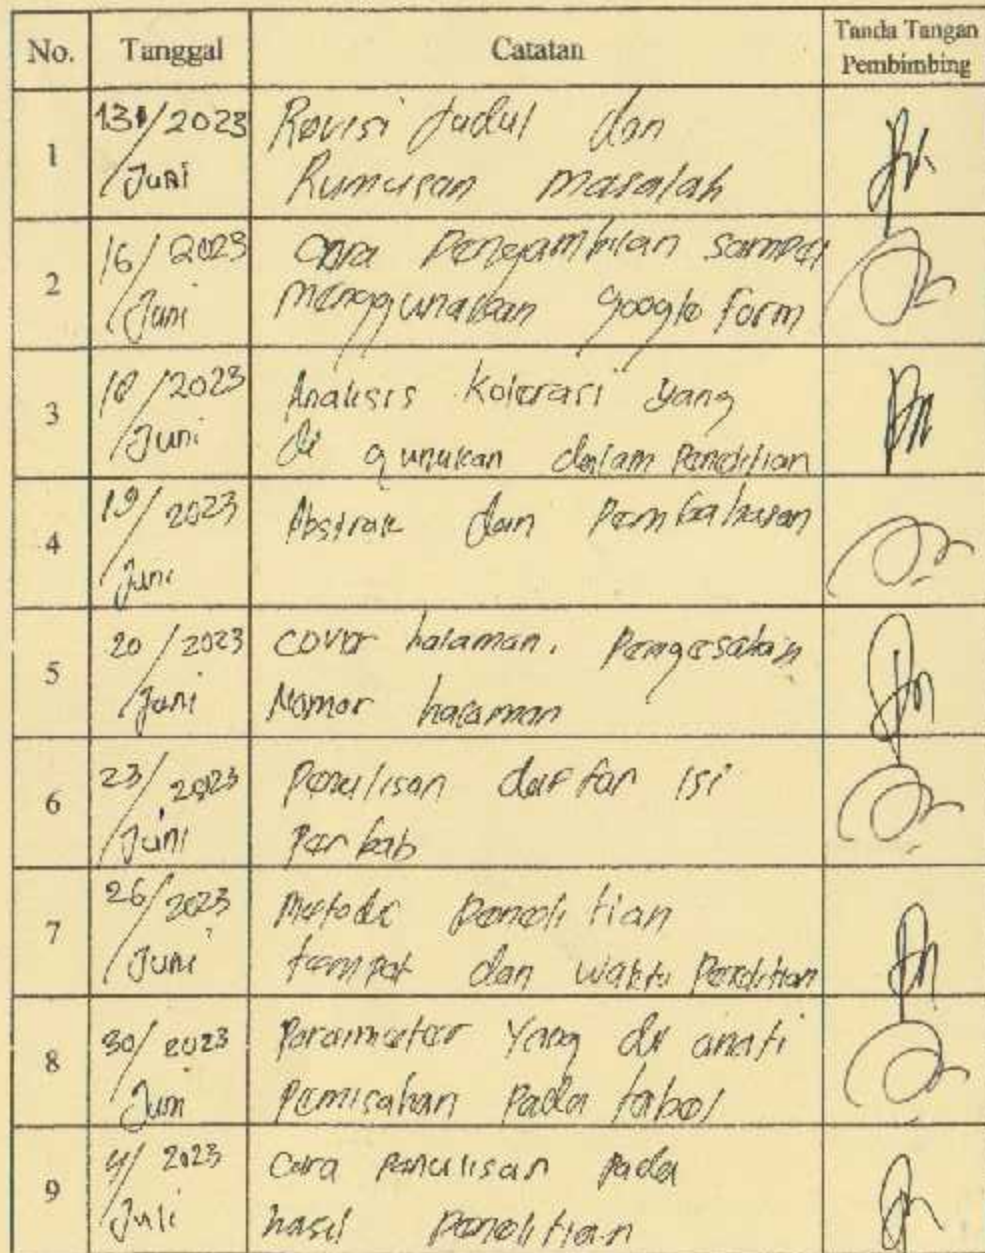 No. Tanggal Catatan Tanda Tangan
Pembimbing
1 13/2023 Revisi Judul dan
Juni Rumusan masalah
2 16/2023 cara Pengambilan sampel
Juni menggunakan google form
3 18/2023 Analisis Kolerasi yang
Juni di gunakan dalam Penelitian
4 19/2023 Abstrak dan Pembahasan
Juni
5 20/2023 cover halaman, Pengesahan
Juni Nomor halaman
6 23/2023 Penulisan daftar isi
Juni Per bab
7 26/2023 Metode Penelitian
Juni tempat dan waktu Penelitian
8 30/2023 Parameter Yang di amati
Juni Pemisahan Pada tabel
9 4/2023 Cara Penulisan Pada
Juli hasil Penelitian